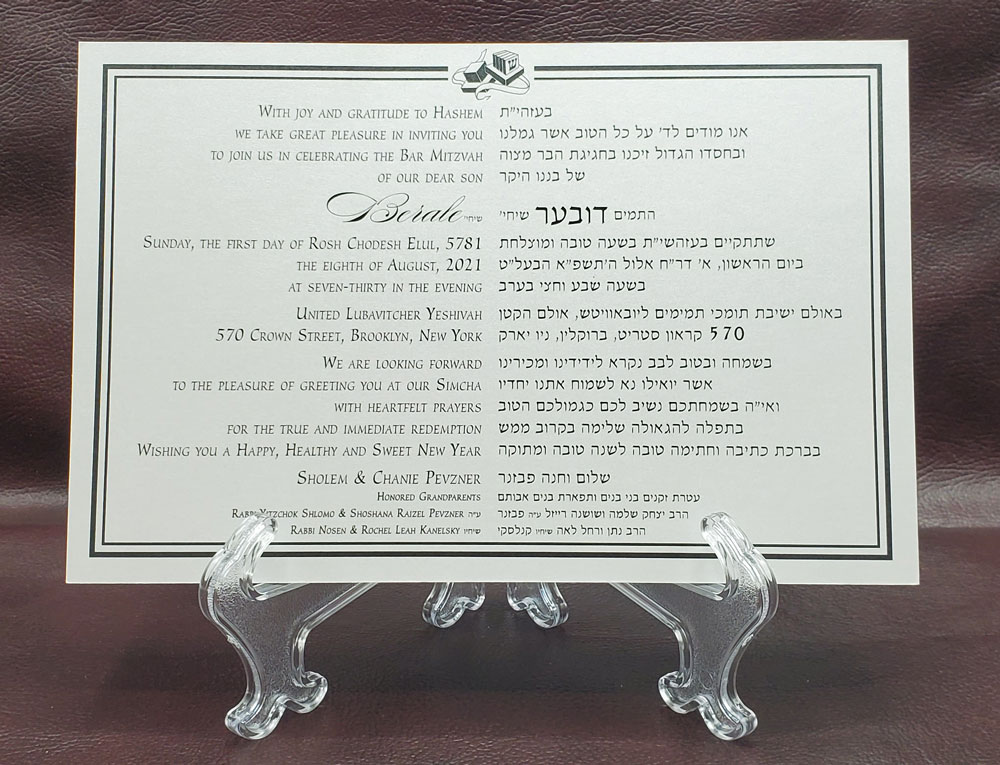 With joy and gratitude to Hashem
we take great pleasure in inviting you
to join us in celebrating the Bar Mitzvah
of our dear son
Berale שיחי'
Sunday, the first day of Rosh Chodesh Elul, 5781
the eighth of August, 2021
at seven-thirty in the evening
United Lubavitcher Yeshivah
570 Crown Street, Brooklyn, New York
We are looking forward
to the pleasure of greeting you at our Simcha
with heartfelt prayers
for the true and immediate redemption
Wishing you a Happy, Healthy and Sweet New Year
Sholem & Chanie Pevzner
Honored Grandparents
Rabbi Yitzchok Shlomo & Shoshana Raizel Pevzner ע"ה
Rabbi Nosen & Rochel Leah Kanelsky שיחיו
בעזהי"ת
אנו מודים לד' על כל הטוב אשר גמלנו
ובחסדו הגדול זיכנו בחגיגת הבר מצוה
של בננו היקר
התמים דובער שיחי'
שתתקיים בעזהשי"ת בשעה טובה ומוצלחת
ביום הראשון, א' דר"ח אלול ה'תשפ"א הבעל"ט
בשעה שבע וחצי בערב
באולם ישיבת תומכי תמימים ליובאוויטש, אולם הקטן
570 קראון סטריט, ברוקלין, ניו יארק
בשמחה ובטוב לבב נקרא לידידינו ומכירינו
אשר יואילו נא לשמוח אתנו יחדיו
ואי"ה בשמחתכם נשיב לכם כגמולכם הטוב
בתפלה להגאולה שלימה בקרוב ממש
בברכת כתיבה וחתימה טובה לשנה טובה ומתוקה
שלום וחנה פבזנר
עטרת זקנים בני בנים ותפארת בנים אבותם
הרב יצחק שלמה ושושנה רייזל ע"ה פבזנר
הרב נתן ורחל לאה שיחיו קנלסקי